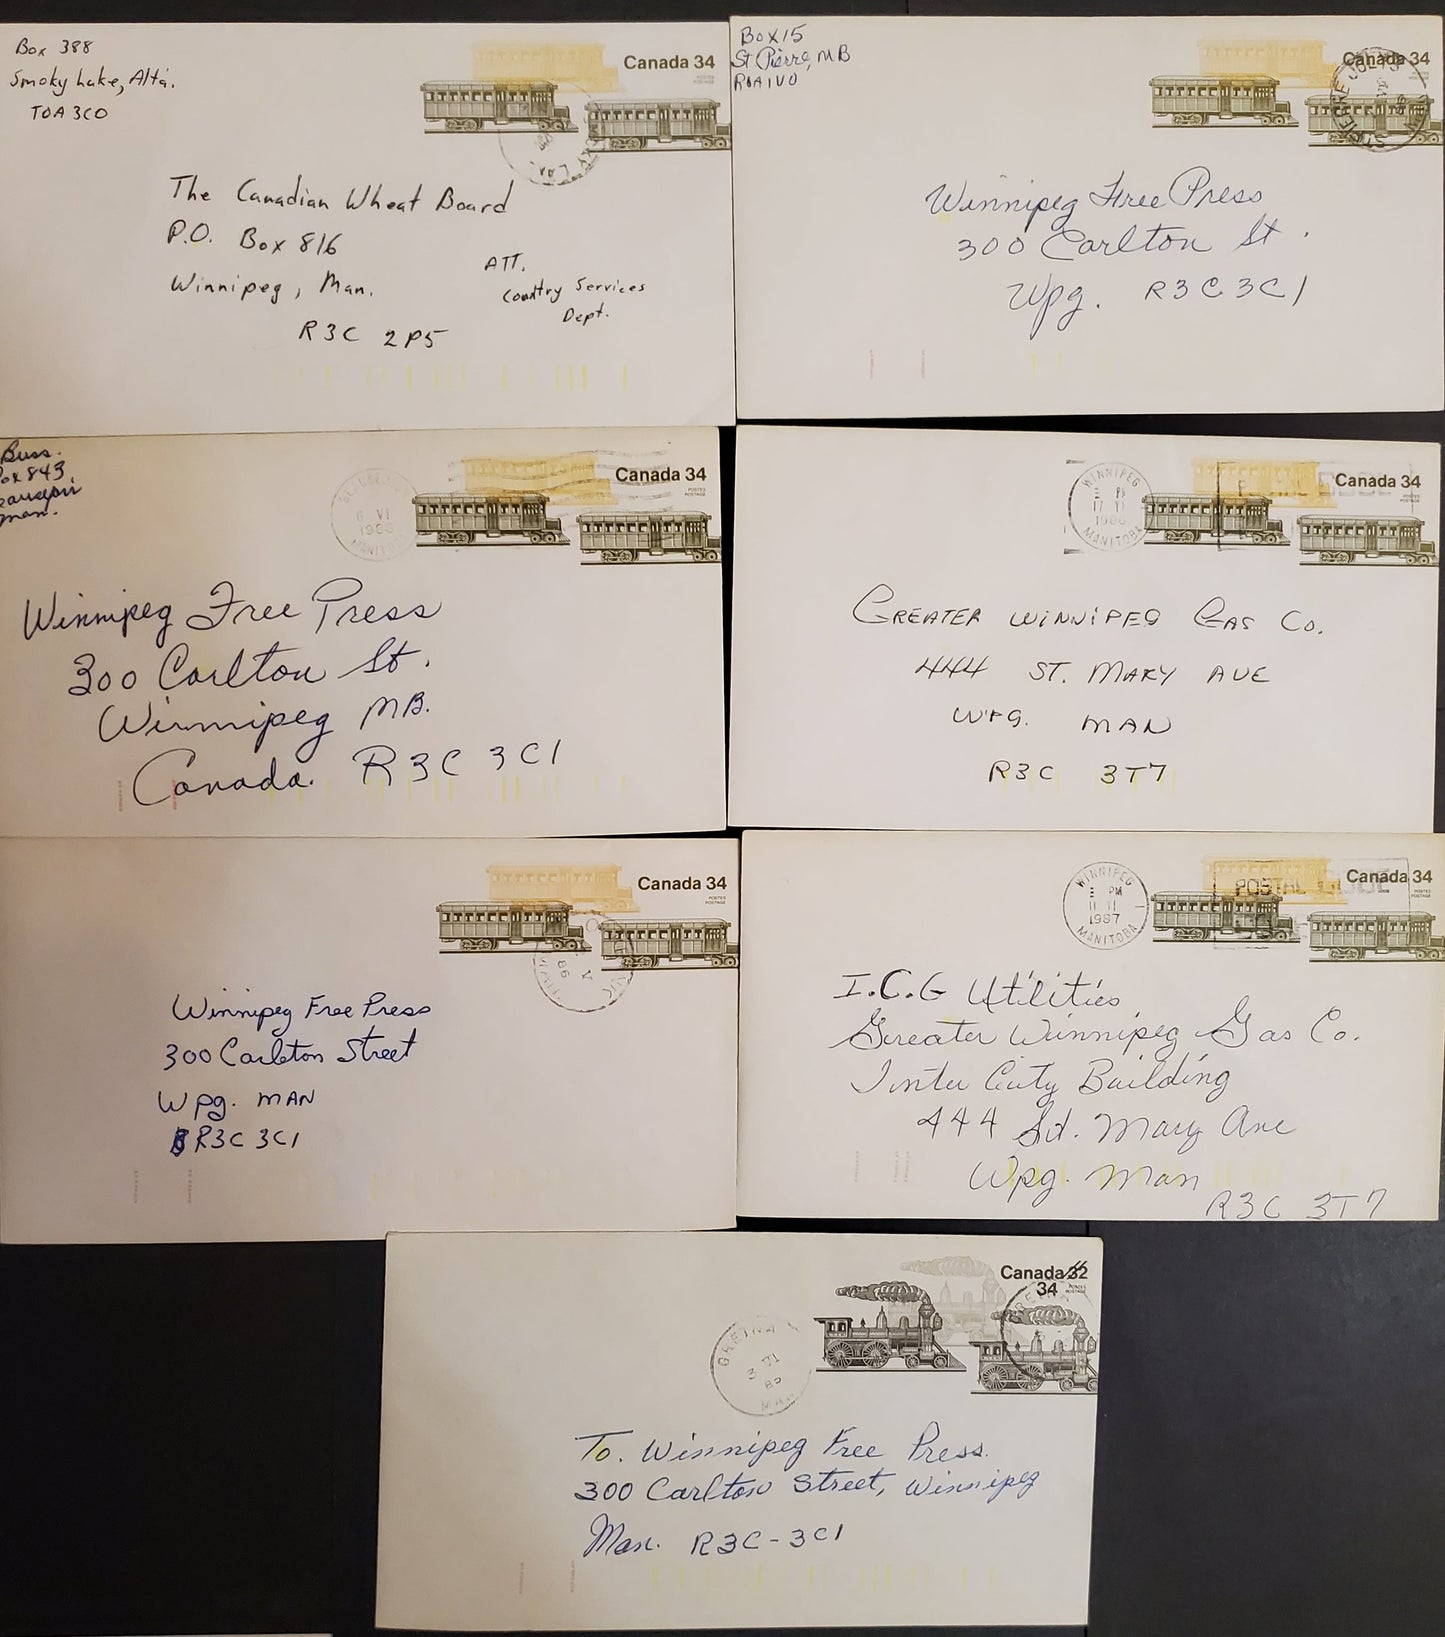 Box 388
Smoky Lake, Alta.
T0A 3C0
Canada 34
POSTES
POSTAGE
The Canadian Wheat Board
P.O. Box 816
Winnipeg, Man.
R3C 2P5
ATT.
Country Services
Dept.
Box 15
St Pierre, MB
R0A1V0
Canada 34
Winnipeg Free Press
300 Carlton St.
Wpg. R3C3C1
Buss.
Box 843
man.
6 VI
1986
MANITOBA
Canada 34
POSTES
POSTAGE
Winnipeg Free Press
300 Carlton St.
Winnipeg MB.
Canada. R3C 3C1
WINNIPEG
PM
17 VI
1986
MANITOBA
Canada 34
POSTES
POSTAGE
GREATER WINNIPEG GAS CO.
444 ST. MARY AVE
WPG. MAN
R3C 3T7
Canada 34
POSTES
POSTAGE
V
86
Winnipeg Free Press
300 Carleton Street
Wpg. MAN
R3C 3C1
WINNIPEG
PM
11 II
1987
MANITOBA
POSTAL CODE
Canada 34
POSTES
POSTAGE
I.C.G Utilities
Greater Winnipeg Gas Co.
Inter City Building
444 St. Mary Ave
Wpg. Man
R3C 3T7
GRETNA
3 VI
85
MAN
Canada 32
34
POSTES
POSTAGE
To. Winnipeg Free Press.
300 Carlton Street, Winnipeg
Man. R3C-3C1